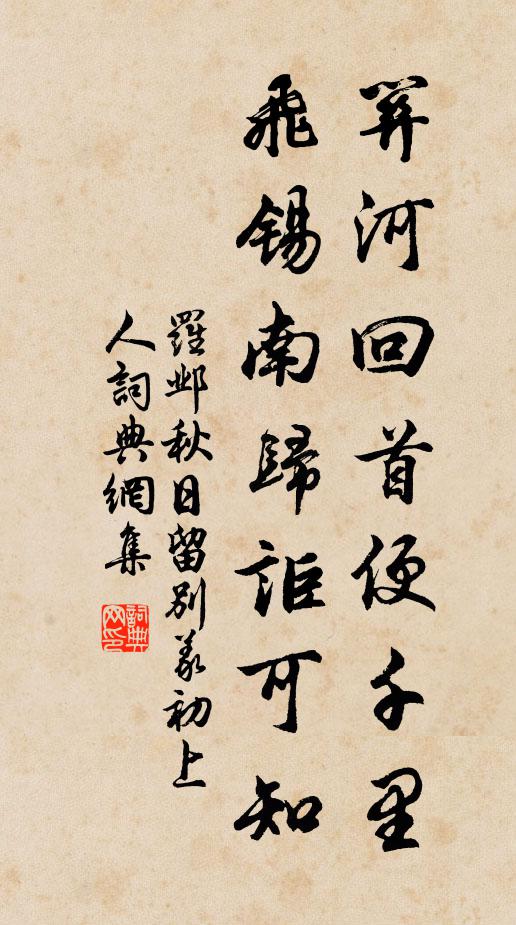 關河回首便千里
飛錫南歸詎可知
羅邺秋日留別義初上
人詞典網集
詞典
网印